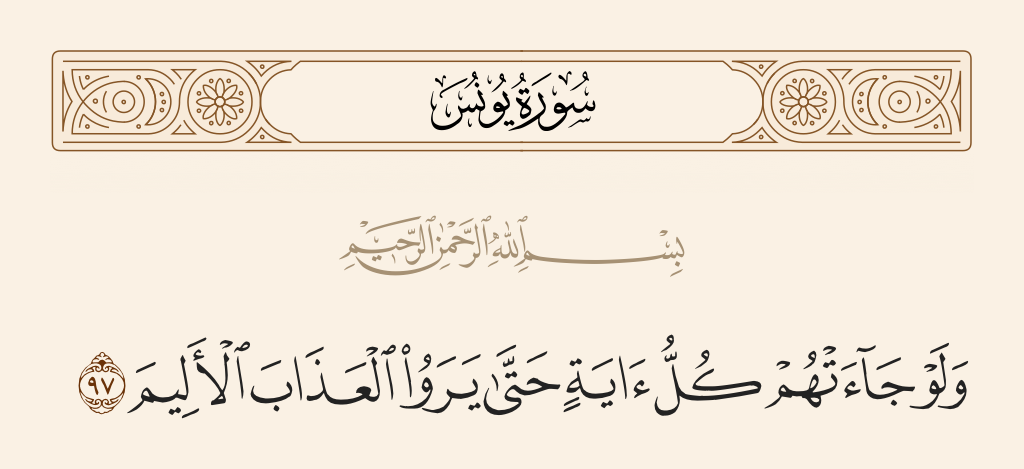 سُورَةُ يُونُسَ
بِسْمِ ٱللَّهِ ٱلرَّحْمَٰنِ ٱلرَّحِيمِ
وَلَوْ جَآءَتْهُمْ كُلُّ ءَايَةٍ حَتَّىٰ يَرَوُا۟ ٱلْعَذَابَ ٱلْأَلِيمَ ٩٧